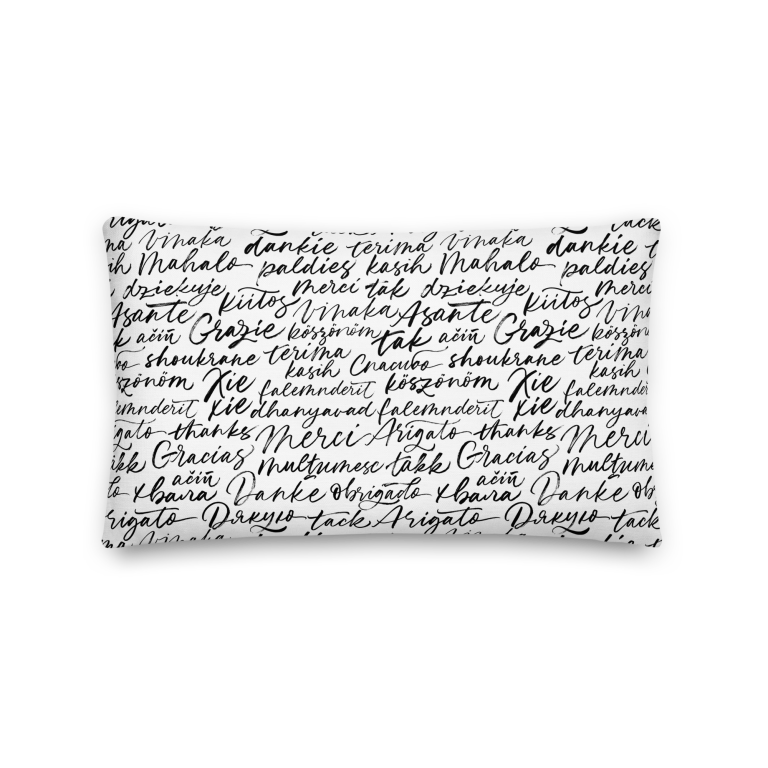 vinaka dankie terima vinaka dankie
Mahalo paldies kasih Mahalo paldies
dziekuje merci tak dziekuje merci
Asante kiitos vinaka Asante kiitos
ačiū Grazie köszönöm tak ačiū Grazie
shoukrane terima kasih Спасибо shoukrane terima kasih
köszönöm Xie falemnderit köszönöm Xie falemnderit
Xie dhanyavad falemnderit Xie
thanks Merci Arigato thanks Merci
Gracias multumesc takk Gracias
ačiū хвала Danke obrigado ačiū хвала Danke
Дякую tack Arigato Дякую tack